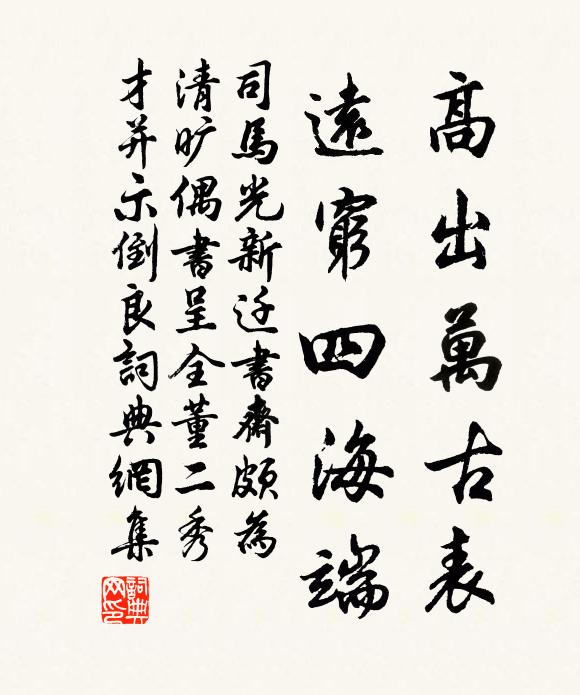 高出萬古表
遠窮四海端
司馬光新迁書齋頗為
清旷偶書呈全董二秀
才并示倒良詞典網集
詞典網印